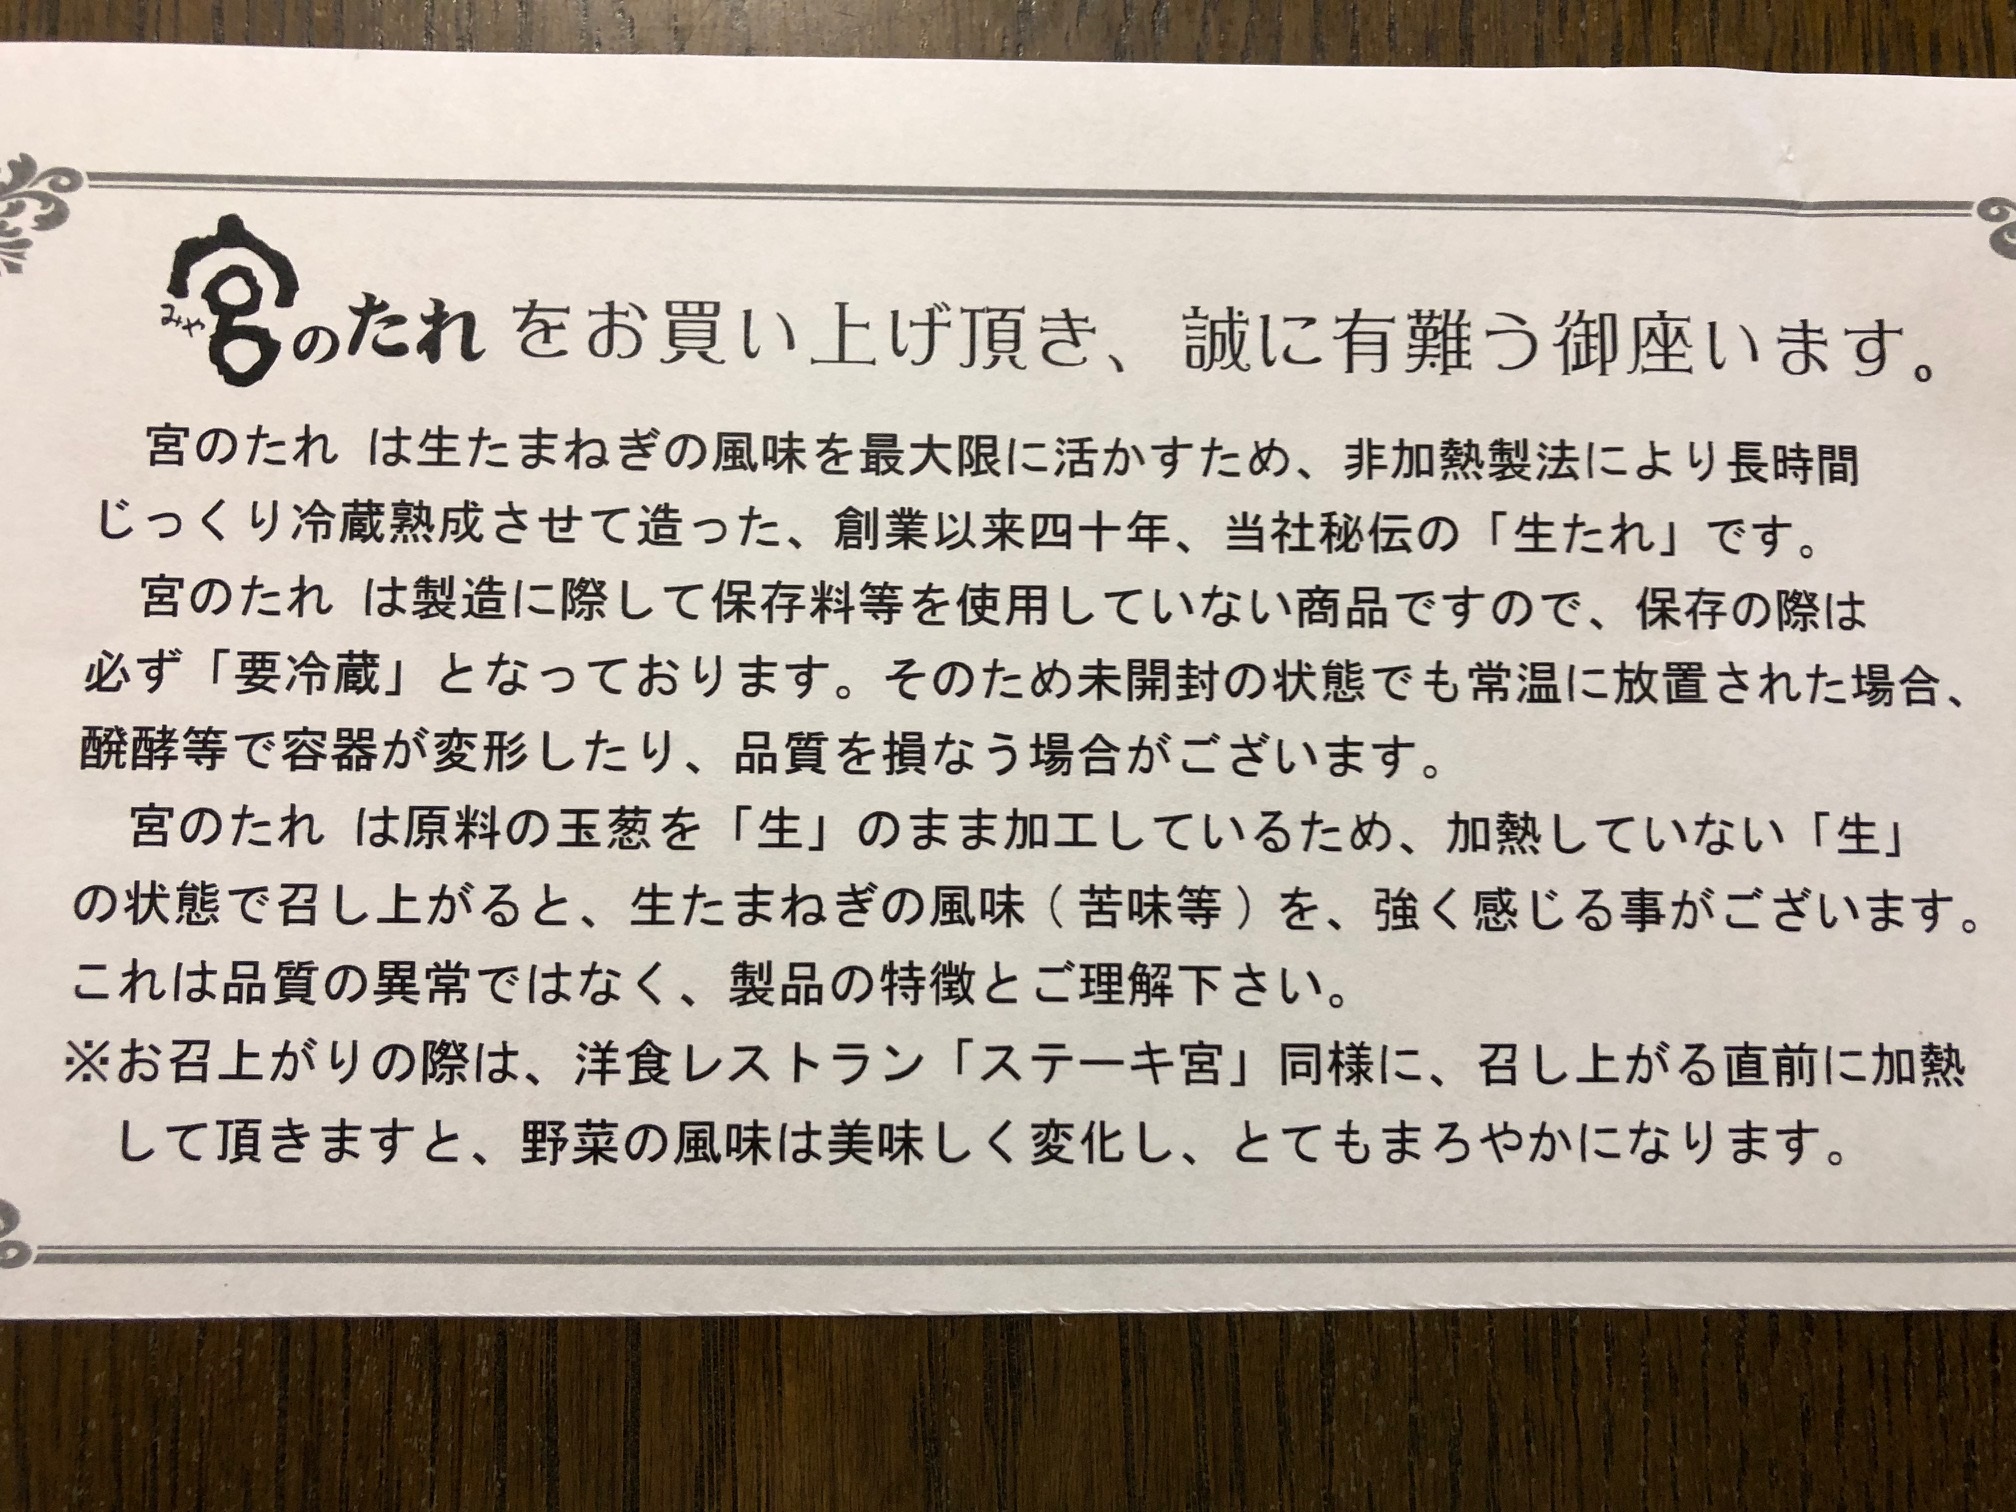 宮のたれをお買い上げ頂き、誠に有難う御座います。
みや
宮のたれ は生たまねぎの風味を最大限に活かすため、非加熱製法により長時間
じっくり冷蔵熟成させて造った、創業以来四十年、当社秘伝の「生たれ」です。
宮のたれ は製造に際して保存料等を使用していない商品ですので、保存の際は
必ず「要冷蔵」となっております。そのため未開封の状態でも常温に放置された場合、
醗酵等で容器が変形したり、品質を損なう場合がございます。
宮のたれ は原料の玉葱を「生」のまま加工しているため、加熱していない「生」
の状態で召し上がると、生たまねぎの風味(苦味等)を、強く感じる事がございます。
これは品質の異常ではなく、製品の特徴とご理解下さい。
※お召上がりの際は、洋食レストラン「ステーキ宮」同様に、召し上がる直前に加熱
して頂きますと、野菜の風味は美味しく変化し、とてもまろやかになります。